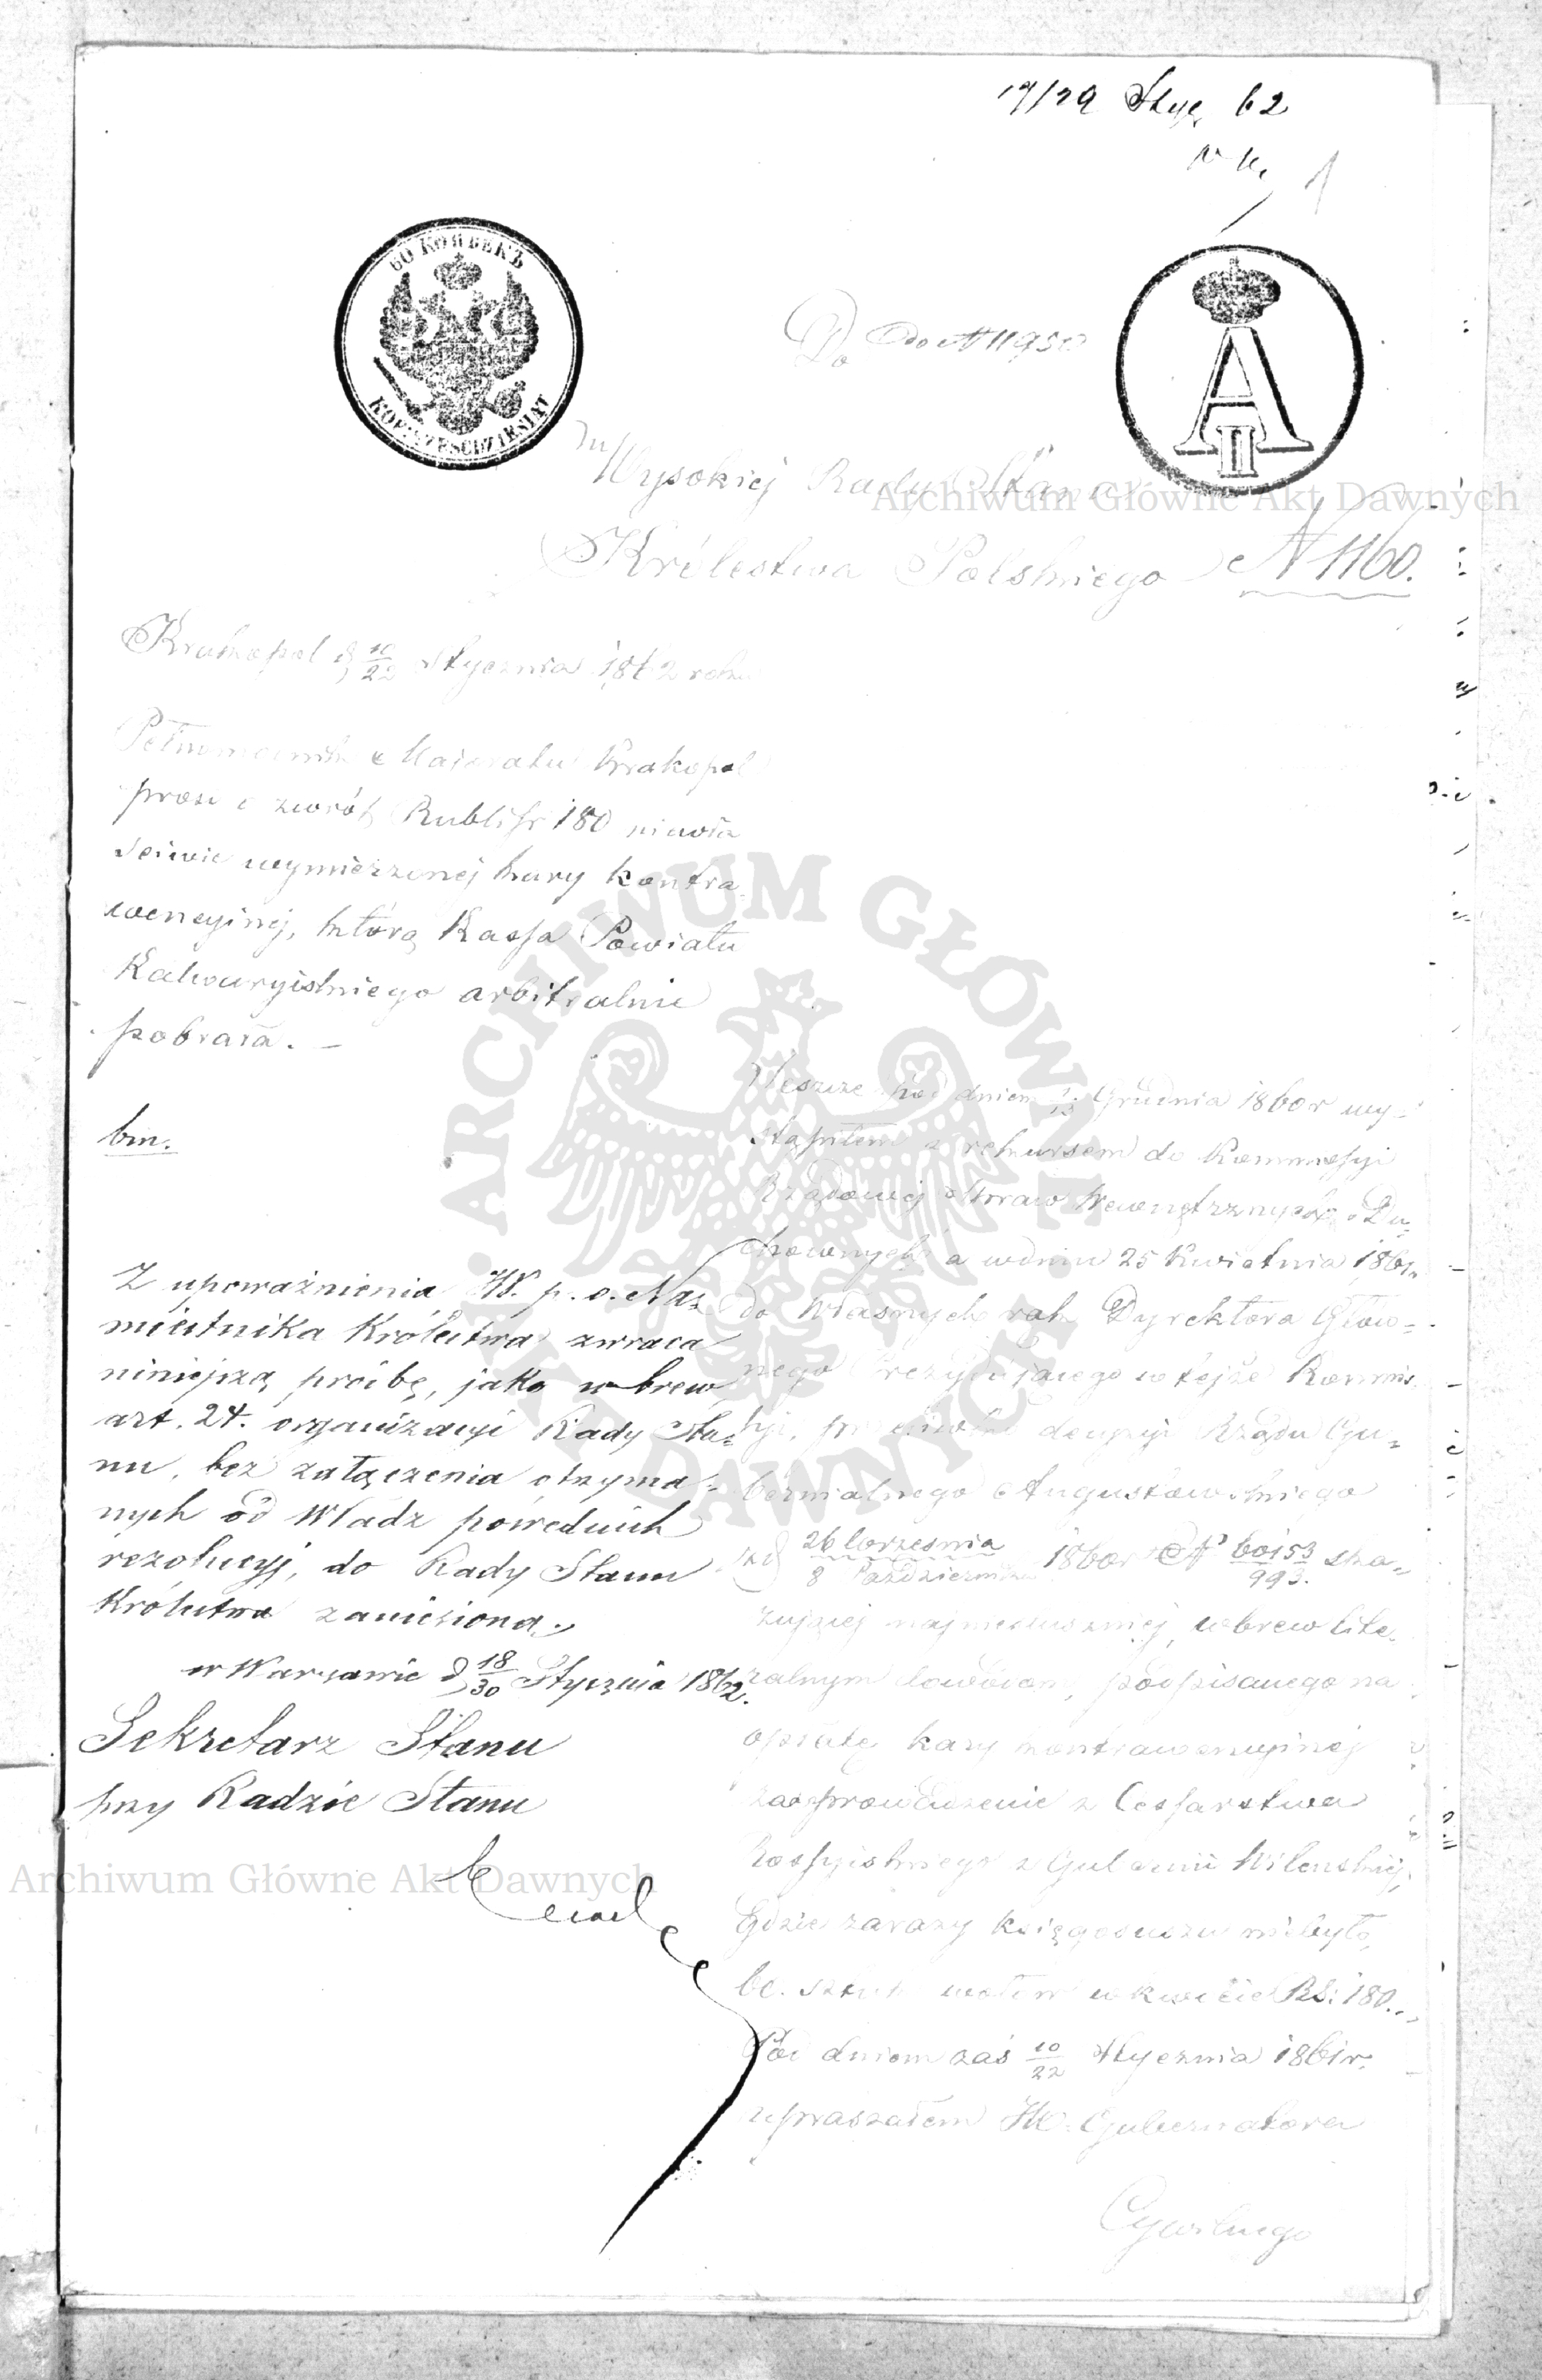 17/29 Stycz. 62
1
60 КОПѢЕКЪ
KOP. SZEŚĆDZIESIĄT
A
II
Do
do N 1195
Wysokiej Rady Stanu
Królestwa Polskiego
N 1160.
Archiwum Główne Akt Dawnych
Krakopol d 10/22 Stycznia 1862 roku
Pełnomocnik Majoratu Krakopol
prosi o zwrot Rubli sr 180 niewła
ściwie wymierzonej kary kontra
wencyjnej, którą Kassa Powiatu
Kalwaryjskiego arbitralnie
pobrała. –
bm.
Z upoważnienia JW. p. o. Na=
miestnika Królestwa zwraca
niniejszą prośbę, jako wbrew
art. 24. organizacyi Rady Sta=
nu, bez załączenia otrzyma=
nych od Władz pośrednich
rezolucyj, do Rady Stanu
Królestwa zaniesioną.
w Warszawie d 18/30 Stycznia 1862.
Sekretarz Stanu
przy Radzie Stanu
Archiwum Główne Akt Dawnych
Jeszcze pod dniem 1/13 Grudnia 1860 r wy=
stąpiłem z rekursem do Kommissyi
Rządowej Spraw Wewnętrznych i Du=
chownych a w dniu 25 Kwietnia 1861 r.
do własnych rąk Dyrektora Głów=
nego Prezydującego w tejże Kommis
syi, przeciwko decyzyi Rządu Gu=
bernialnego Augustowskiego
z d 26 Września/8 Października 1860 r N 60153/993. ska=
zującej najniesłuszniej, wbrew lite=
ralnym dowodom, podpisanego na
opłatę kary kontrawencyjnej
za sprowadzenie z Cesarstwa
Rossyjskiego z Gubernii Wileńskiej,
gdzie zarazy księgosuszu nie było,
sztuk wołów w kwocie RS: 180.
Pod dniem zaś 10/22 Stycznia 1861 r.
upraszałem JW. Gubernatora
Cywilnego
ARCHIWUM GŁÓWNE AKT DAWNYCH